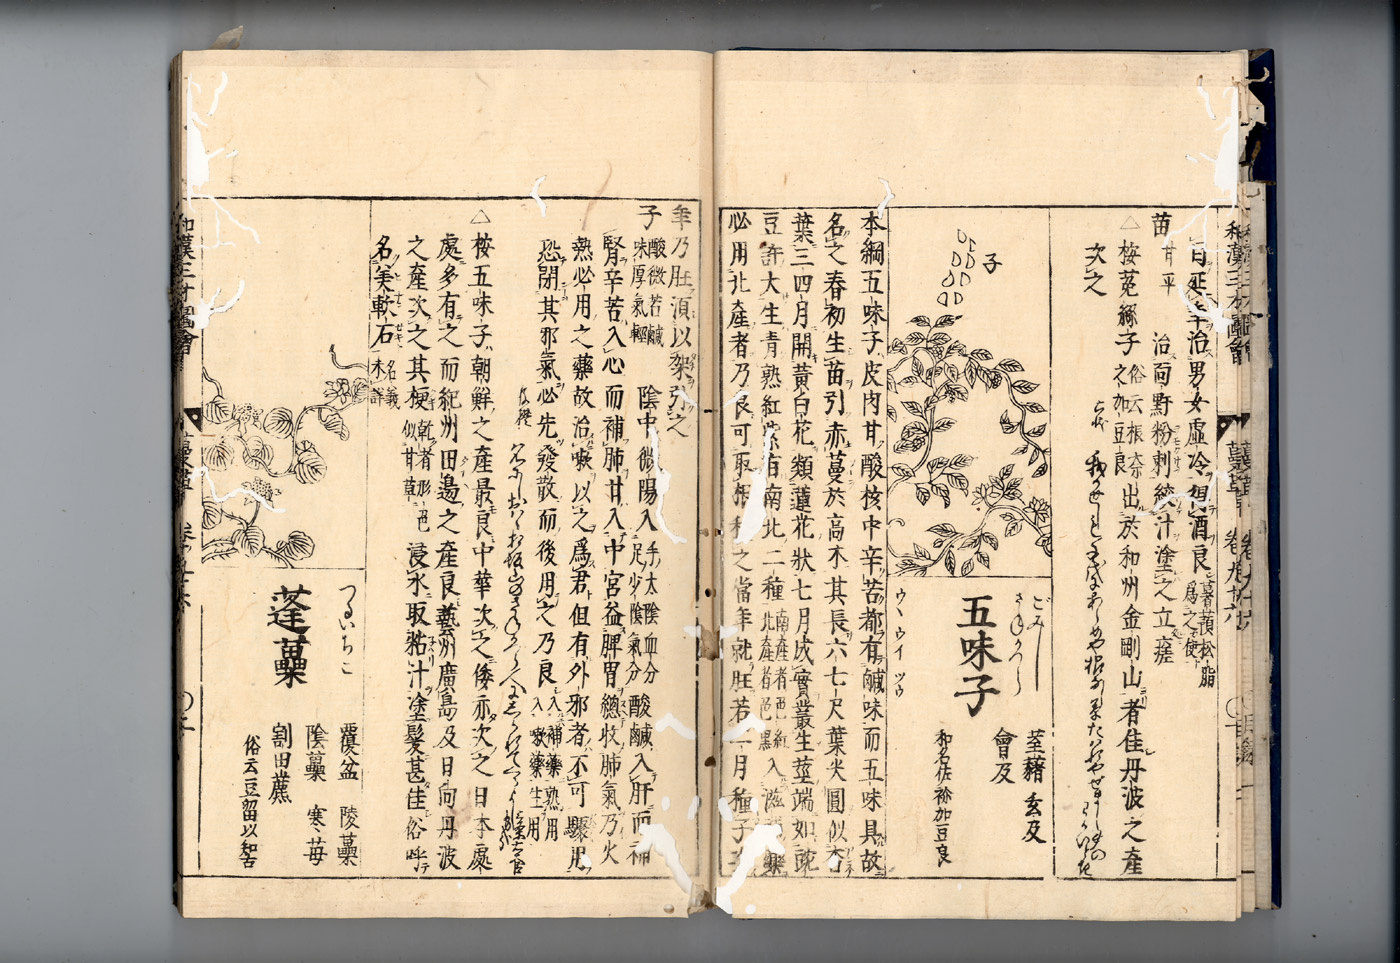 和漢三才圖會
蔓草
卷九十六
目延年治男女虛冷得酒良
蔓荊松脂
爲之使
苗
甘平
治面䵟粉刺絞汁塗之立瘥
△按菟絲子
俗云根奈
之加豆良
出於和州金剛山者佳丹波之產
次之
子
五味子
ごみし
さねかつら
ウヽウイツウ
莖藸
玄及
會及
和名佐祢加豆良
本綱五味子皮肉甘酸核中辛苦都有鹹味而五味具故
名之春初生苗引赤蔓於高木其長六七尺葉尖圓似杏
葉三四月開黃白花類蓮花狀七月成實叢生莖端如豌
豆許大生青熟紅紫有南北二種
南產者色紅
北產者色黑
入滋補藥
必用北產者乃良可取根種之當年就旺若二月種子次
年乃旺須以架引之
子
酸微苦鹹
味厚氣輕
陰中微陽入
手太陰血分
足少陰氣分
酸鹹入肝而補
腎辛苦入心而補肺甘入中宮益脾胃總收肺氣乃火
熱必用之藥故治嗽以之爲君但有外邪者不可驟用
恐閉其邪氣必先發散而後用之乃良
入補藥熟用
入嗽藥生用
△按五味子朝鮮之產最良中華次之倭亦次之日本處
處多有之而紀州田邉之產良藝州廣島及日向丹波
之產次之其梗
乾者形色
似甘草
浸水取粘汁塗髮甚佳俗呼
名美軟石
名義
未詳
蓬蘽
つるいちこ
覆盆
陵蘽
陰蘽
寒苺
割田藨
俗云豆留以知古
和漢三才圖會
蔓草
卷九十六